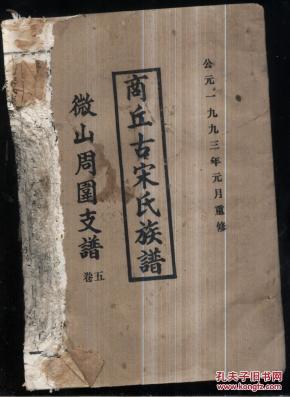 公元一九九三年元月重修
商丘古宋氏族譜
微山周圍支譜
卷五
孔夫子旧书网